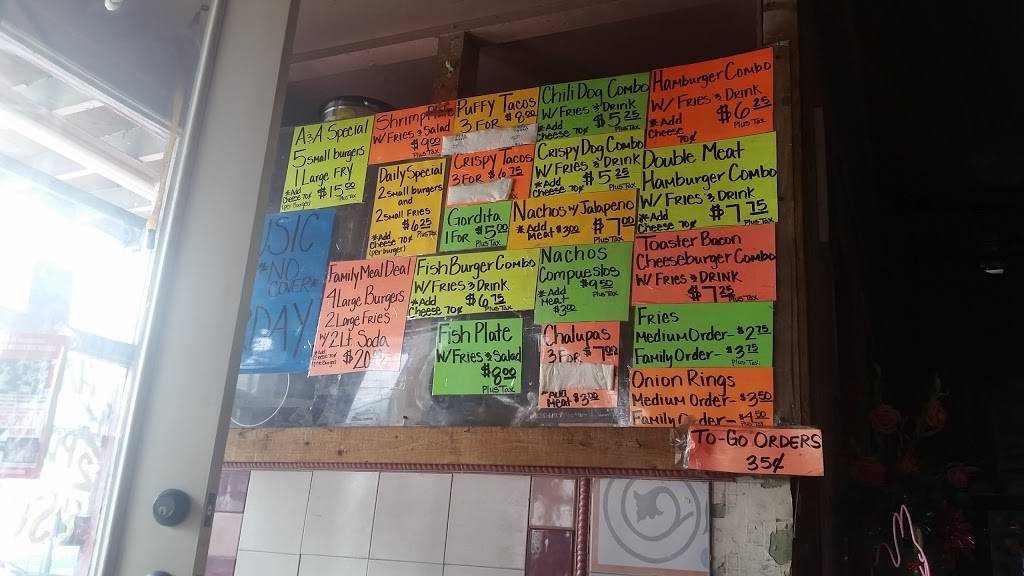 A&A Special
5 small burgers
1 Large FRY
*Add
Cheese 70¢
(per burger)
$15.00
Plus Tax
Shrimp Plate
W/Fries & Salad
$9.00
Plus Tax
Puffy Tacos
3 For $8.00
Chili Dog Combo
W/ Fries & Drink
*Add
Cheese 70¢
$5.25
Plus Tax
Hamburger Combo
W/ Fries & Drink
*Add
Cheese
70¢
$6.25
Plus Tax
Daily Special
2 small burgers
and
2 small FRIES
$6.25
*Add
Cheese 70¢
(per burger)
Plus Tax
Crispy Tacos
3 For $6.75
Crispy Dog Combo
W/ Fries & Drink
*Add
Cheese 70¢
$5.25
Plus Tax
Double Meat
Hamburger Combo
W/ Fries & Drink
*Add
Cheese 70¢
$7.15
Plus Tax
Gordita
1 For $5.00
Plus Tax
Nachos w/ Jalapeno
*Add
Meat $3.00
$7.00
Plus Tax
USIC
*NO
COVER*
DAY
Family Meal Deal
4 Large Burgers
2 Large Fries
w/ 2 Lt Soda
$20.00
Fish Burger Combo
W/ Fries & Drink
*Add
Cheese 70¢
$6.75
Plus Tax
Nachos
Compuestos
$9.50
Plus Tax
*Add
Meat
$3.00
Toaster Bacon
Cheeseburger Combo
W/ Fries & Drink
$7.25
Plus Tax
Fish Plate
W/ Fries & Salad
$8.00
Plus Tax
Chalupas
3 For $7.00
*Add
Meat $3.00
Fries
Medium Order- $2.75
Family Order- $3.75
Plus Tax
Onion Rings
Medium Order- $3.50
Family Order- $4.50
Plus Tax
To-Go Orders
35¢